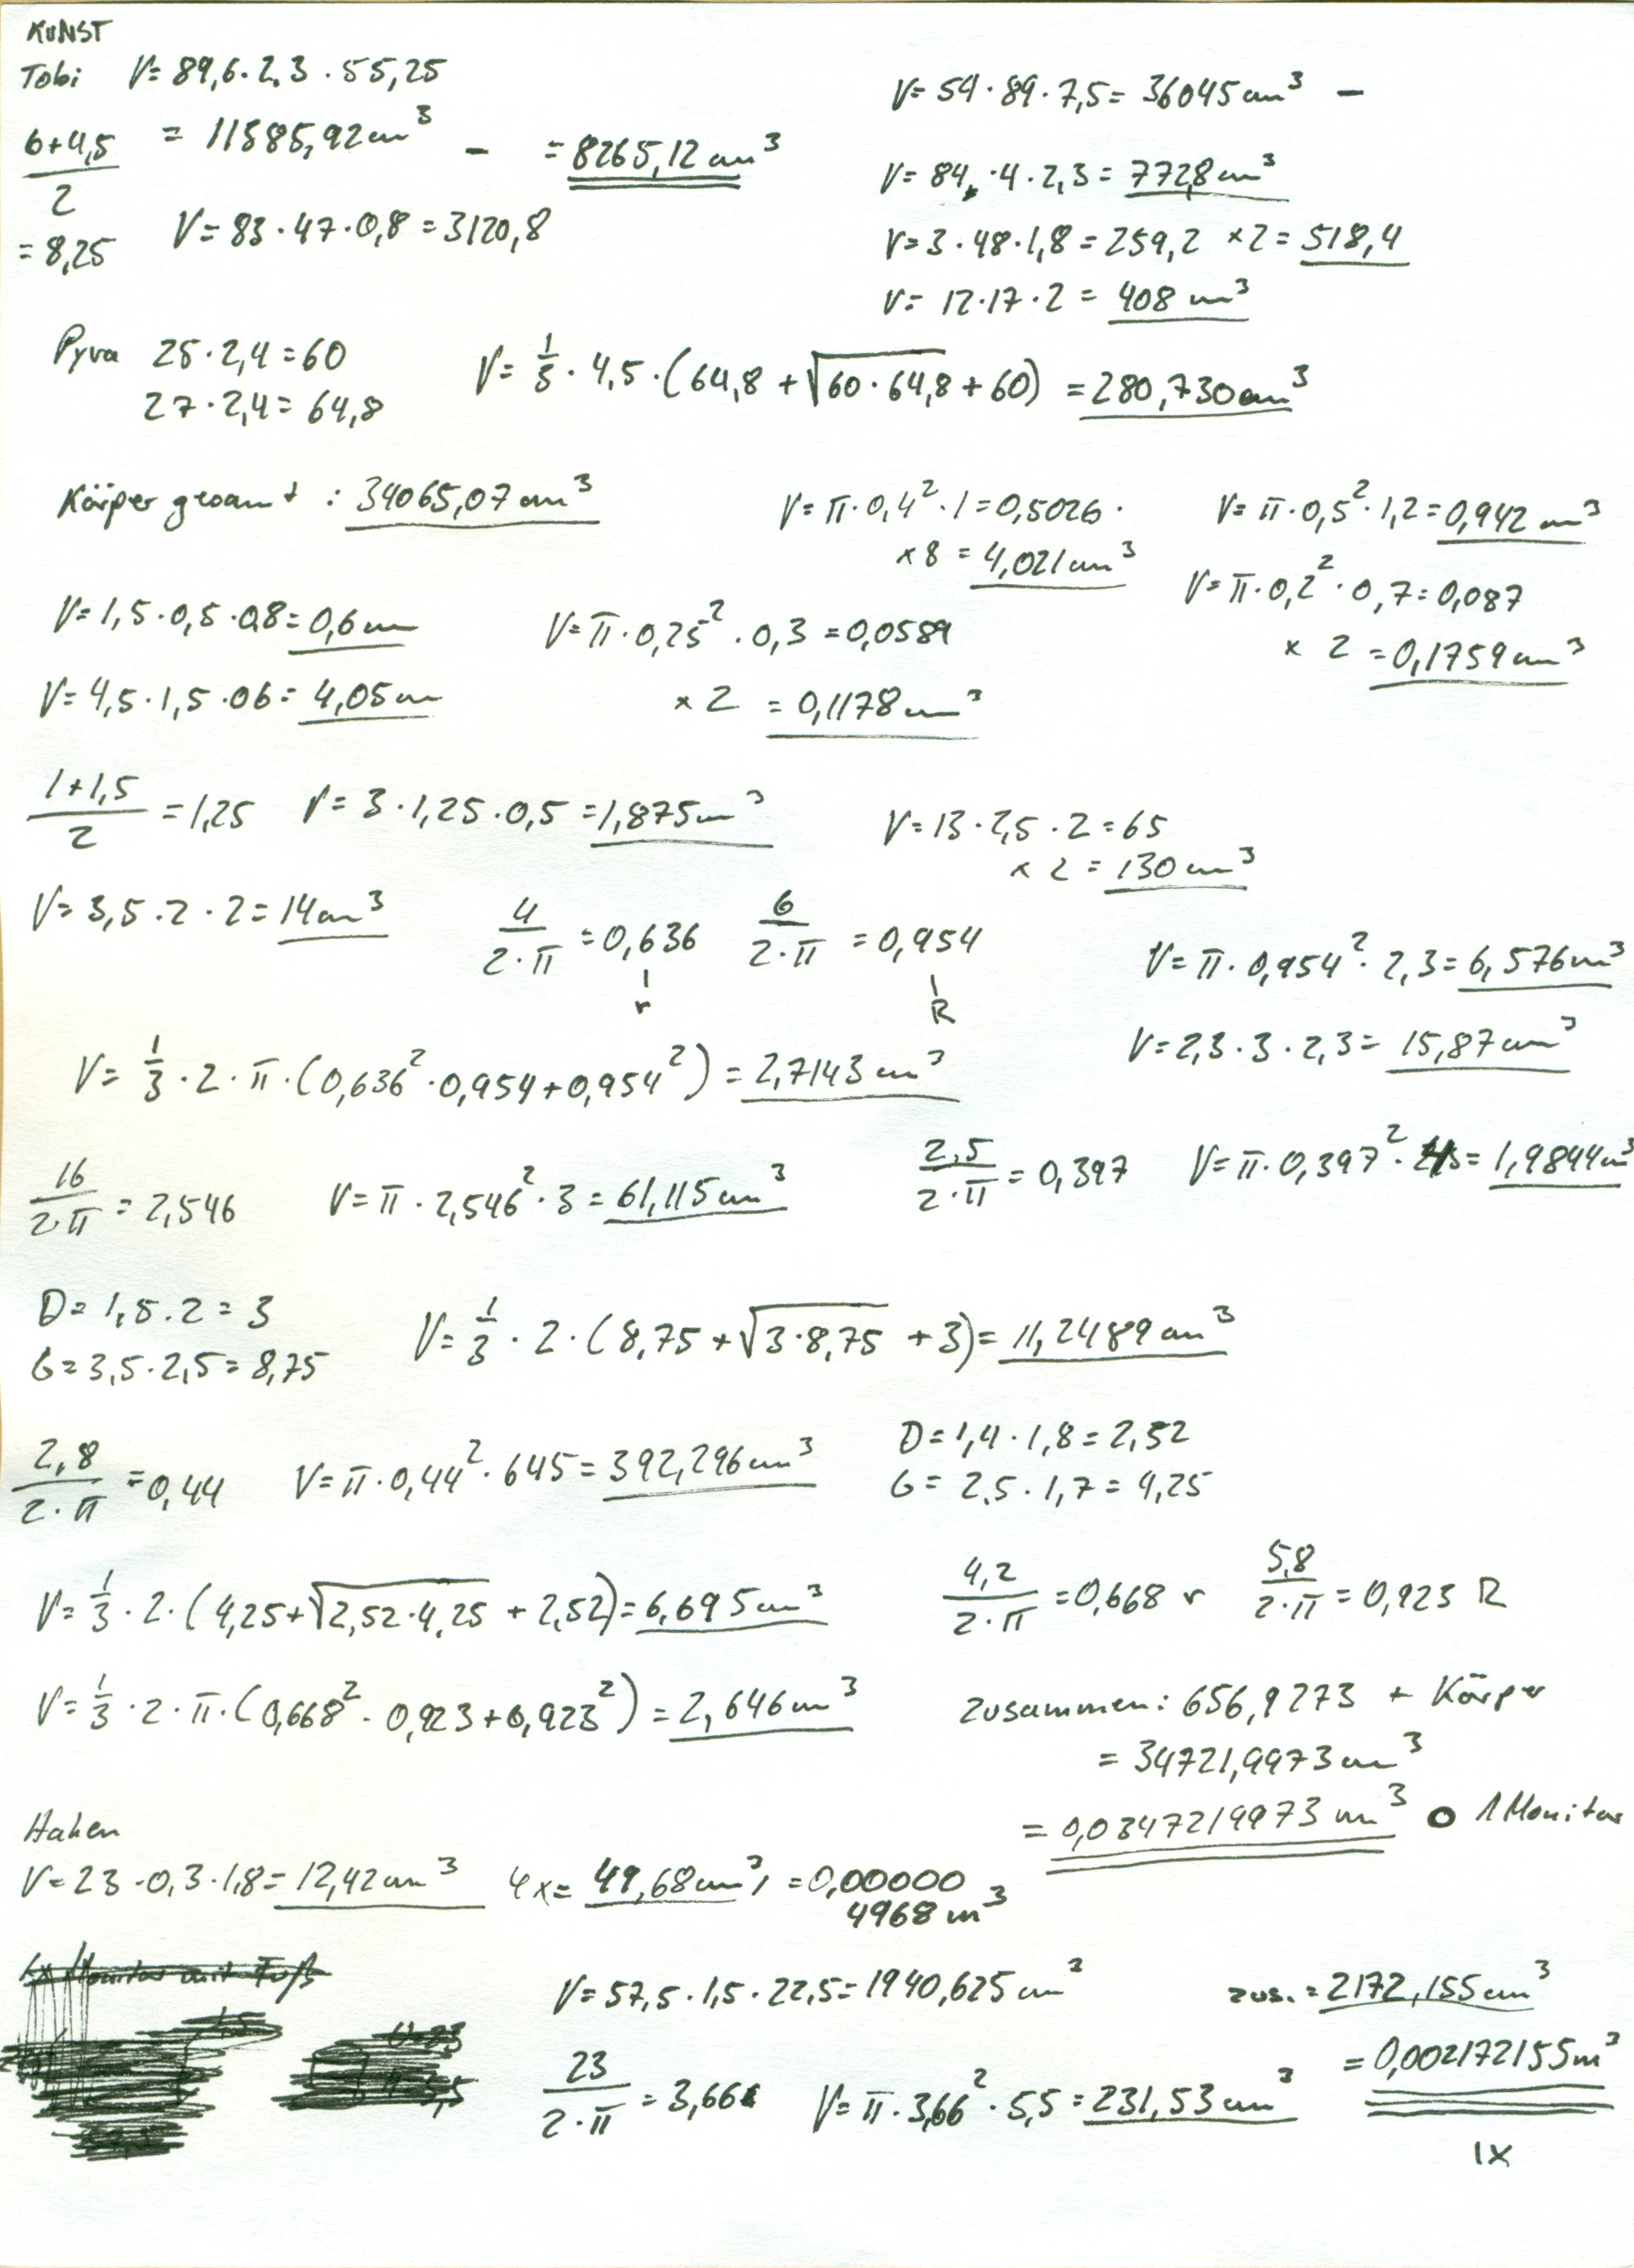 KUNST
Tobi V= 89,6·2,3·55,25
= 11385,92cm³ - = 8265,12cm³
6+4,5
2
= 8,25
V= 83·47·0,8 = 3120,8
V= 54·89·7,5= 36045cm³ -
V= 84,·4·2,3= 772,8cm³
V= 3·48·1,8= 259,2 ×2= 518,4
V= 12·17·2= 408cm³
Pyra 25·2,4=60
27·2,4= 64,8
V= 1/3·4,5·(64,8+√60·64,8+60) =280,730cm³
Körper gesamt : 34065,07cm³
V= π·0,4²·1=0,5026·
×8 = 4,021cm³
V= π·0,5²·1,2=0,942cm³
V= π·0,2²·0,7=0,087
× 2 =0,1759cm³
V= 1,5·0,5·0,8=0,6cm
V= π·0,25²·0,3=0,0589
× 2 = 0,1178cm³
V= 4,5·1,5·06= 4,05cm
1+1,5
2
=1,25 V= 3·1,25·0,5=1,875cm³
V= 13·2,5·2=65
× 2= 130cm³
V= 3,5·2·2= 14cm³
4
2·π
=0,636
r
6
2·π
=0,954
R
V= π·0,954²·2,3=6,576cm³
V=2,3·3·2,3= 15,87cm³
V= 1/3·2·π·(0,636²·0,954+0,954²) = 2,7143cm³
16
2·π
= 2,546 V= π·2,546²·3= 61,115cm³
2,5
2·π
=0,397 V= π·0,397²·4= 1,9844cm³
D= 1,5·2= 3
G=3,5·2,5=8,75
V= 1/3·2·(8,75+√3·8,75+3)= 11,2489cm³
2,8
2·π
=0,44 V= π·0,44²·645= 392,296cm³
D=1,4·1,8=2,52
G= 2,5·1,7=4,25
V= 1/3·2·(4,25+√2,52·4,25+2,52)=6,695cm³
4,2
2·π
=0,668 r
5,8
2·π
=0,923 R
V= 1/3·2·π·(0,668²·0,923+0,923²) = 2,646cm³
Zusammen: 656,9273 + Körper
= 34721,9973cm³
= 0,0347219973m³ 1 Monitor
Haken
V=23·0,3·1,8= 12,42cm³ 4x= 49,68cm³ =0,00000
4968m³
1x Monitor mit Fuß
V= 57,5·1,5·22,5= 1940,625cm³
zus.= 2172,155cm³
= 0,002172155m³
1x
23
2·π
= 3,66 V= π·3,66²·5,5= 231,53cm³